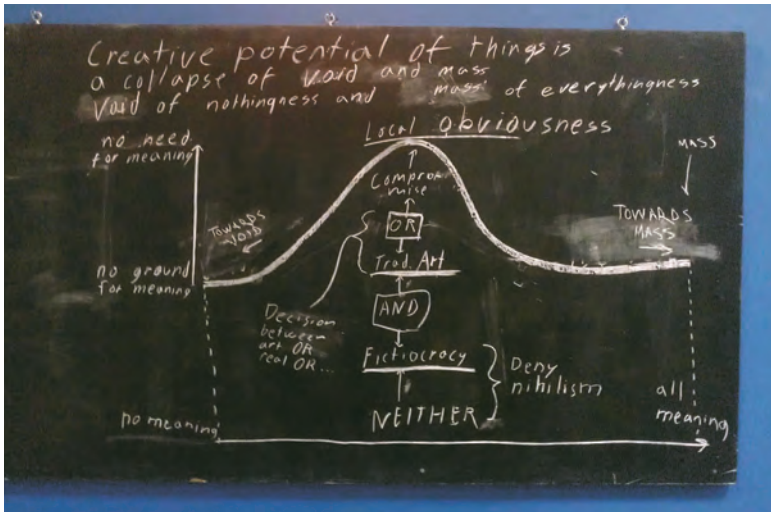 Creative potential of things is
a collapse of void and mass
void of nothingness and mass of everythingness
Local obviousness
no need
for meaning
MASS
Comprom
mise
OR
TOWARDS
VOID
TOWARDS
MASS
Trad. Art
no ground
for meaning
AND
Decision
between
art OR
real OR...
Fictiocracy
Deny
nihilism
NEITHER
all
meaning
no meaning